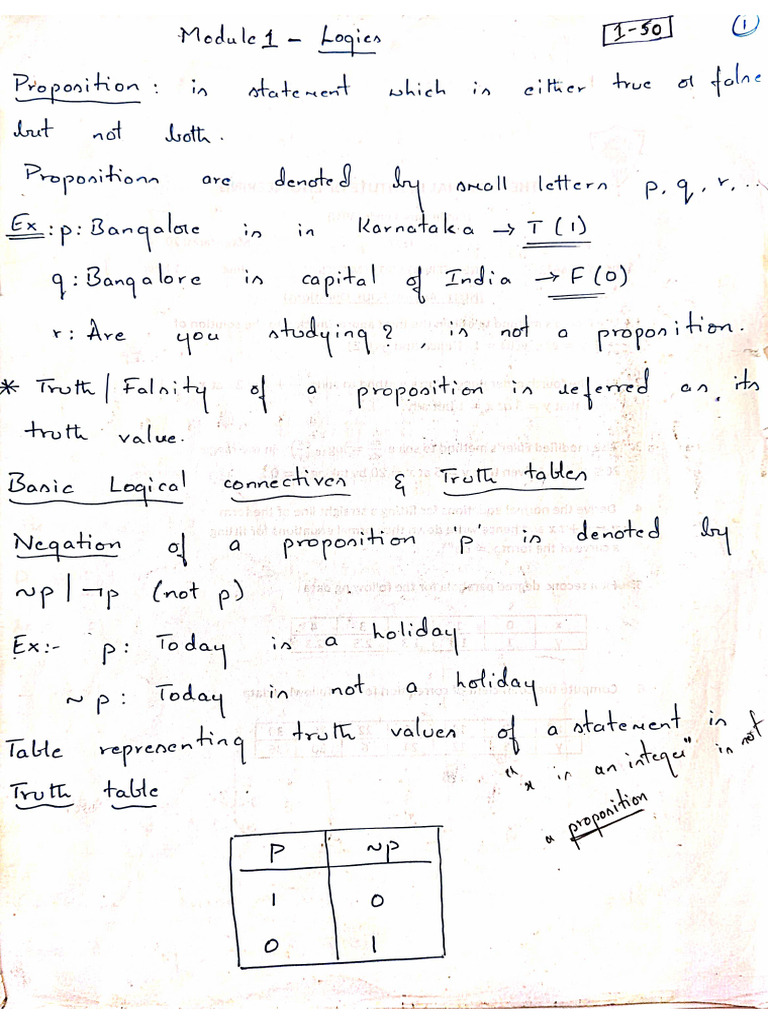 Module 1 - Logics
1-50
1
Proposition : is statement which is either true or false
but not both.
Propositions are denoted by small letters p, q, r, ...
Ex : p : Bangalore is in Karnataka → T (1)
q : Bangalore is capital of India → F (0)
r : Are you studying ? is not a proposition.
* Truth / Falsity of a proposition is referred as its
truth value.
Basic Logical connectives & Truth tables
Negation of a proposition 'p' is denoted by
~p / ¬p (not p)
Ex:- p : Today is a holiday
~ p : Today is not a holiday
Table representing truth values of a statement is
Truth table
"x is an integer" is not
a proposition
p ~p
1 0
0 1